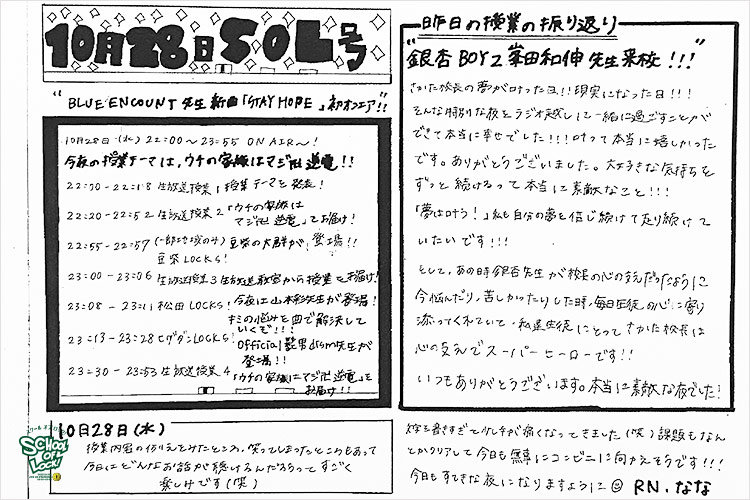 10月28日 SOL号
"BLUE ENCOUNT 先生 新曲「STAY HOPE」初オンエア!!"
10月28日(水) 22:00~23:55 ON AIR~!
今夜の授業テーマは、ウチの家族はマジ卍逆電!!
22:00-22:18 生放送授業1 授業テーマを発表!
22:20-22:52 生放送授業2「ウチの家族は
マジ卍逆電」をお届け!
22:55-22:57 (一部地域のみ) 豆柴の大群が登場!!
豆柴LOCKS!
23:00-23:06 生放送授業3 生放送教室から授業をお届け!
23:08-23:11 松田LOCKS! 今夜は山本彩先生が登場!
キミの悩みを曲で解決して
いくぞ!!!
23:13-23:28 ヒゲダンLOCKS! Official髭男dism先生が
登場!!
23:30-23:53 生放送授業4
「ウチの家族はマジ卍逆電」を
お届け!!
10月28日(水)
授業内容の
笑ってしまったところもあって
今日はどんなお話が聴けるんだろうってすごく
楽しみです(笑)
昨日の授業の振り返り
"銀杏BOYZ 峯田和伸先生来校!!!"
さかた校長の夢が叶った日!!現実になった日!!!
そんな特別な夜をラジオ越しに一緒に過ごすことが
できて本当に幸せでした!!!叶って本当に嬉しかった
です。ありがとうございました。大好きな気持ちを
ずっと続けるって本当に素敵なこと!!!
「夢は叶う!」私も自分の夢を信じ続けて走り続けて
いたいです!!!
そして、あの時銀杏先生が校長の心の支えだったように
今悩んだり、苦しかったりした時、毎日生徒の心に寄り
添ってくれていて、私達生徒にとってさかた校長は
心の支えでスーパーヒーローです!!
いつもありがとうございます。本当に素敵な夜でした!
文字を書きすぎて少し手が痛くなってきました(笑)課題もなん
とかクリアして今日も無事にコンビニに向かえそうです!!!
今日もすてきな夜になりますように☺ RN.なな
SCHOOL OF LOCK!